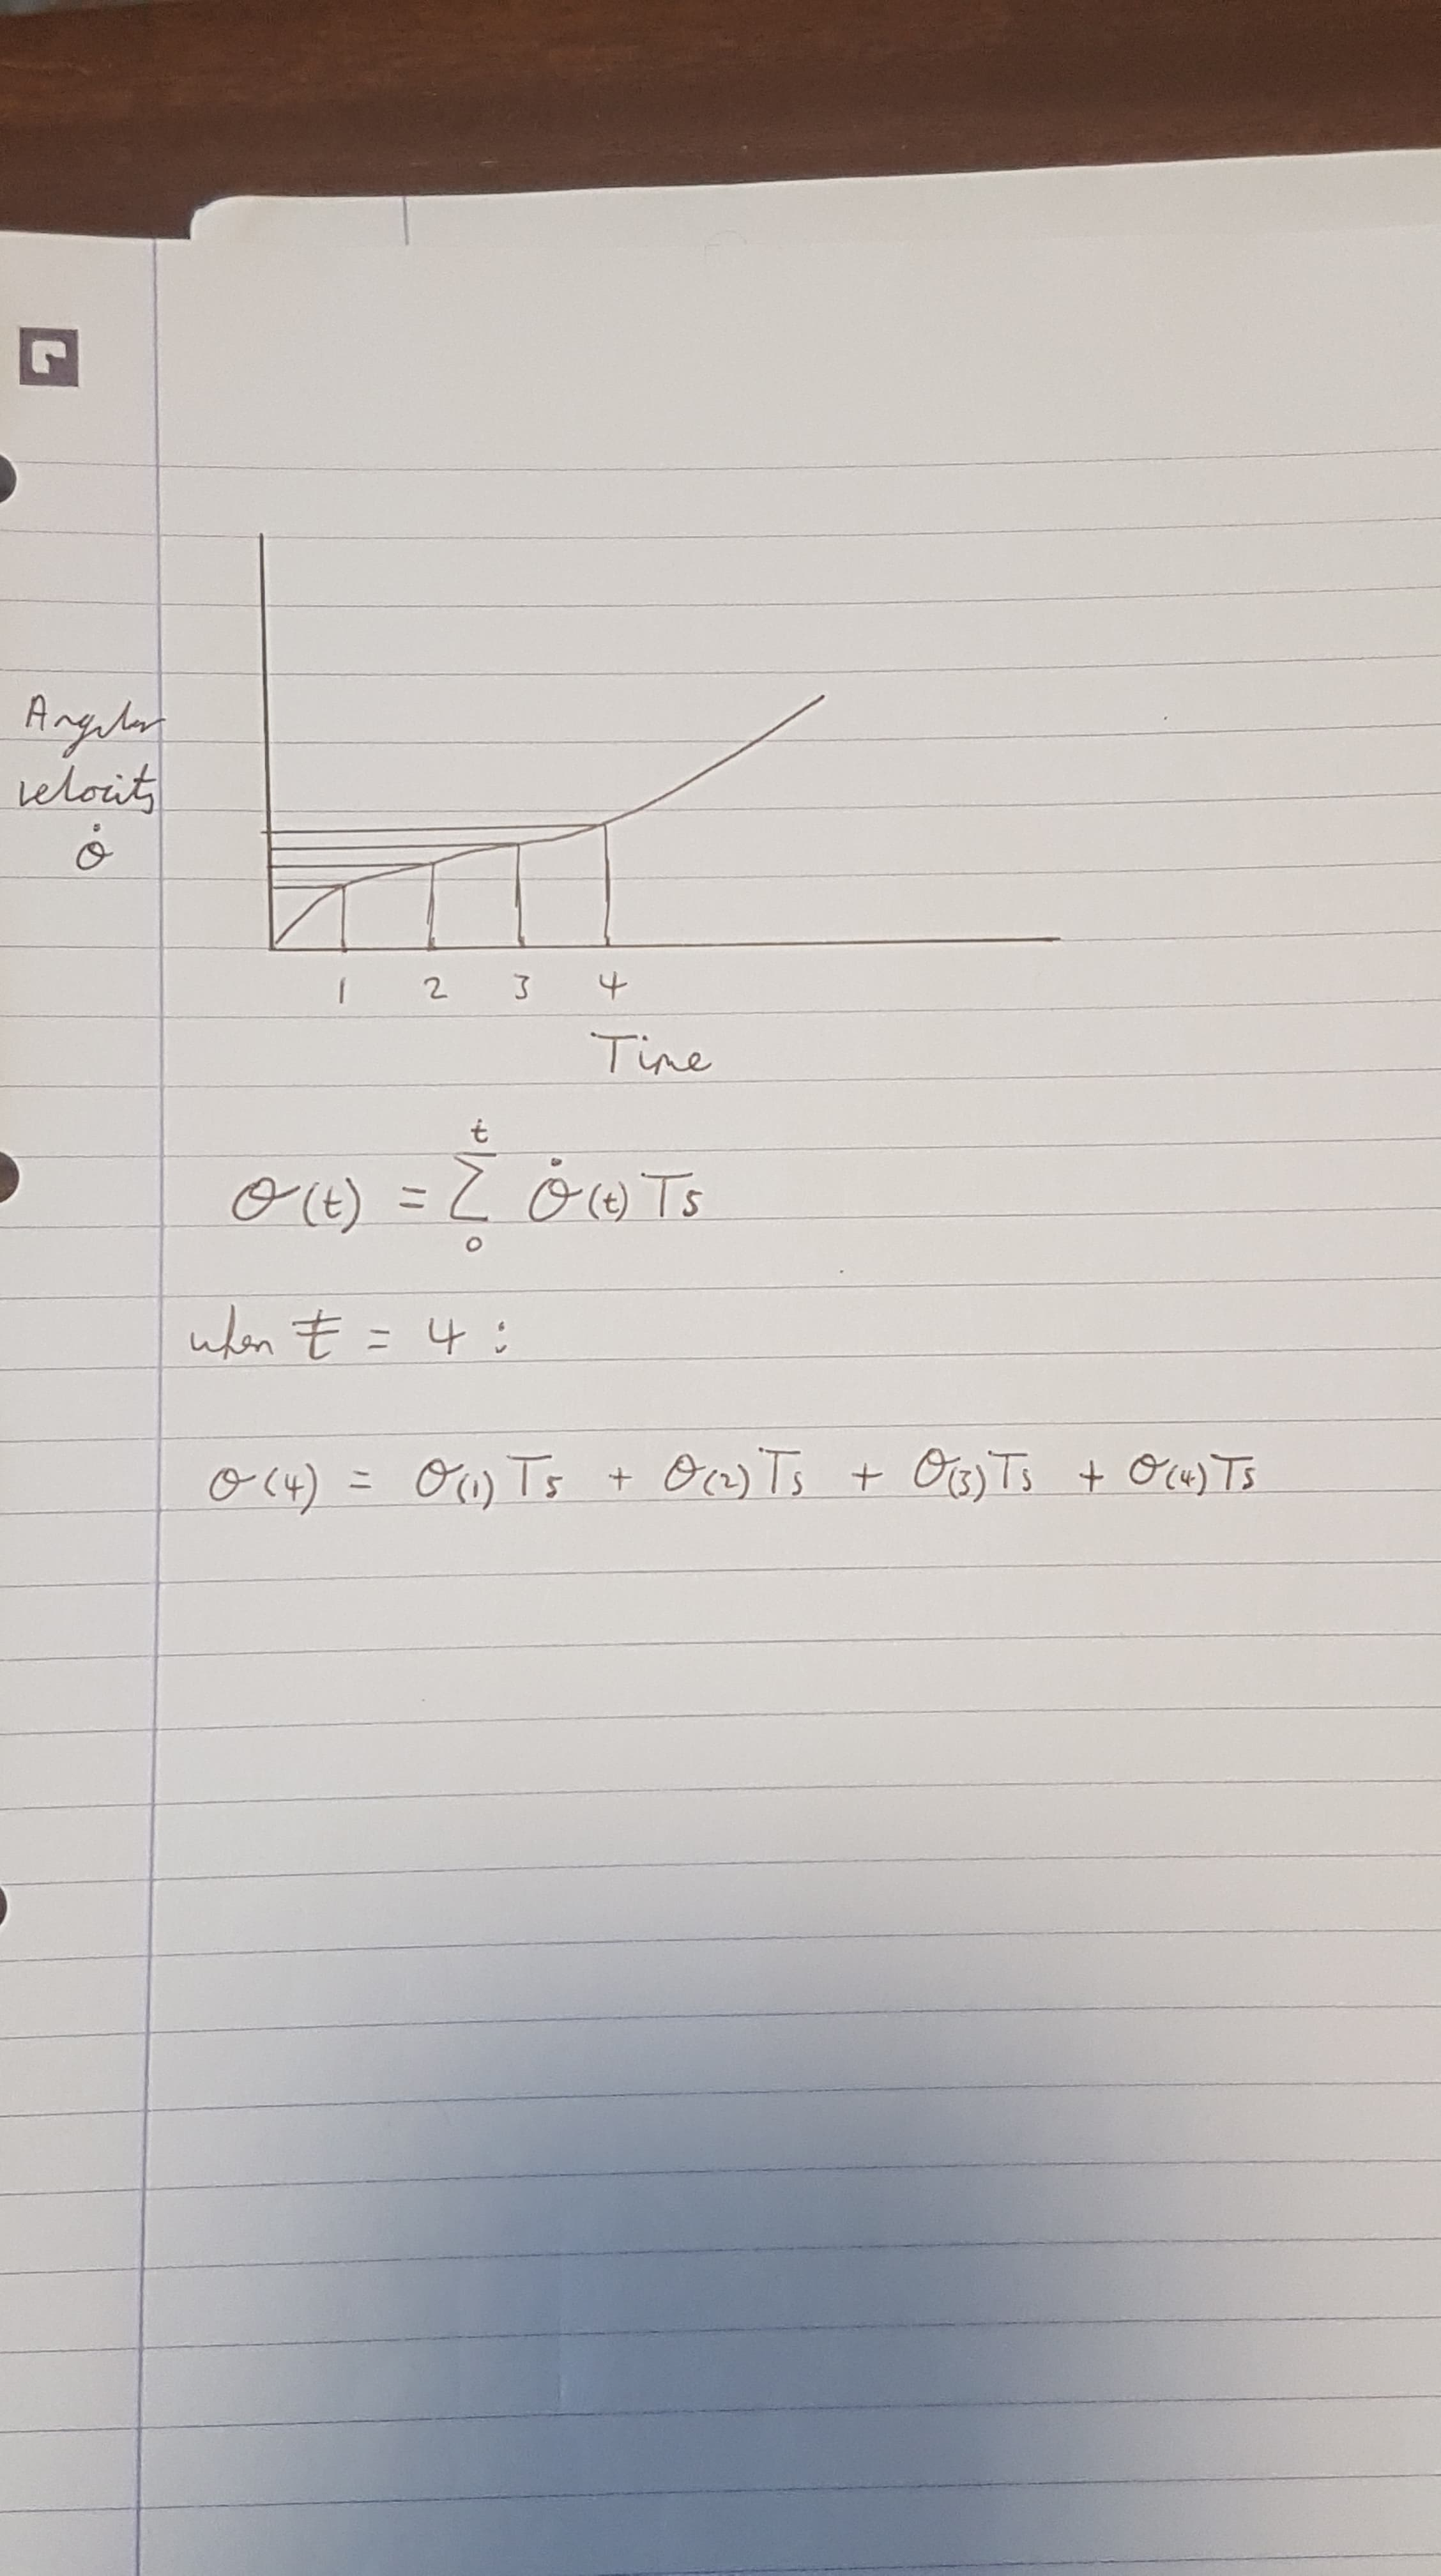 Angular
velocity
θ̇
1 2 3 4
Time
θ(t) = Σ₀ᵗ θ̇(t) Ts
when t = 4 :
θ(4) = θ(1) Ts + θ(2) Ts + θ(3) Ts + θ(4) Ts